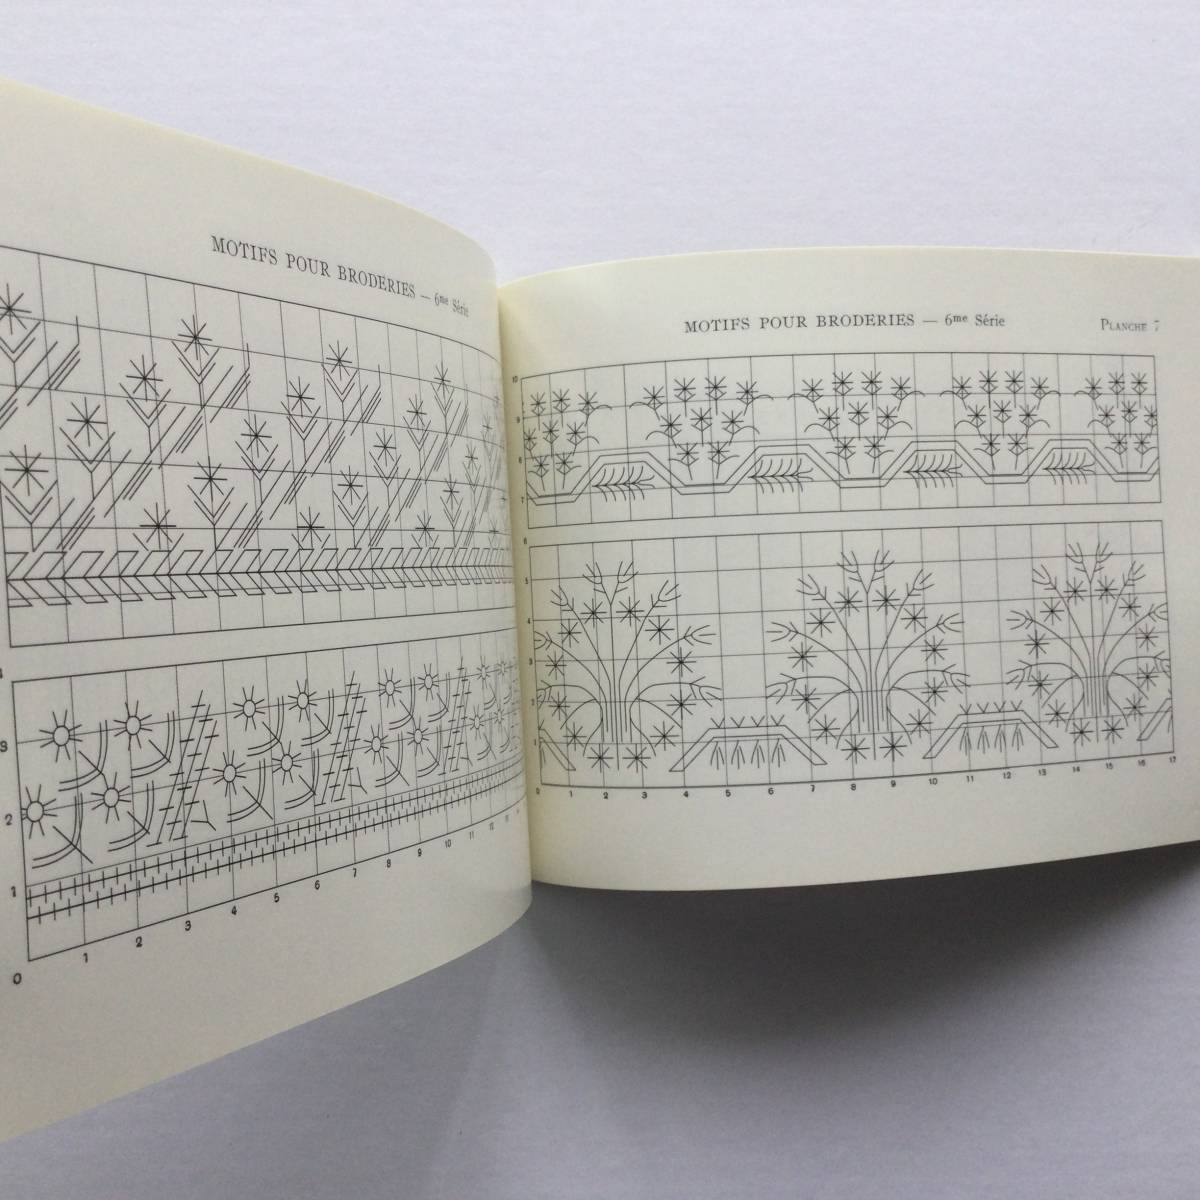 MOTIFS POUR BRODERIES — 6me Série
3
2
1
0
1 2 3 4 5 6 7 8 9 10 11 12 13
MOTIFS POUR BRODERIES — 6me Série
PLANCHE 7
10
9
8
7
6
5
4
3
2
1
0 1 2 3 4 5 6 7 8 9 10 11 12 13 14 15 16 17